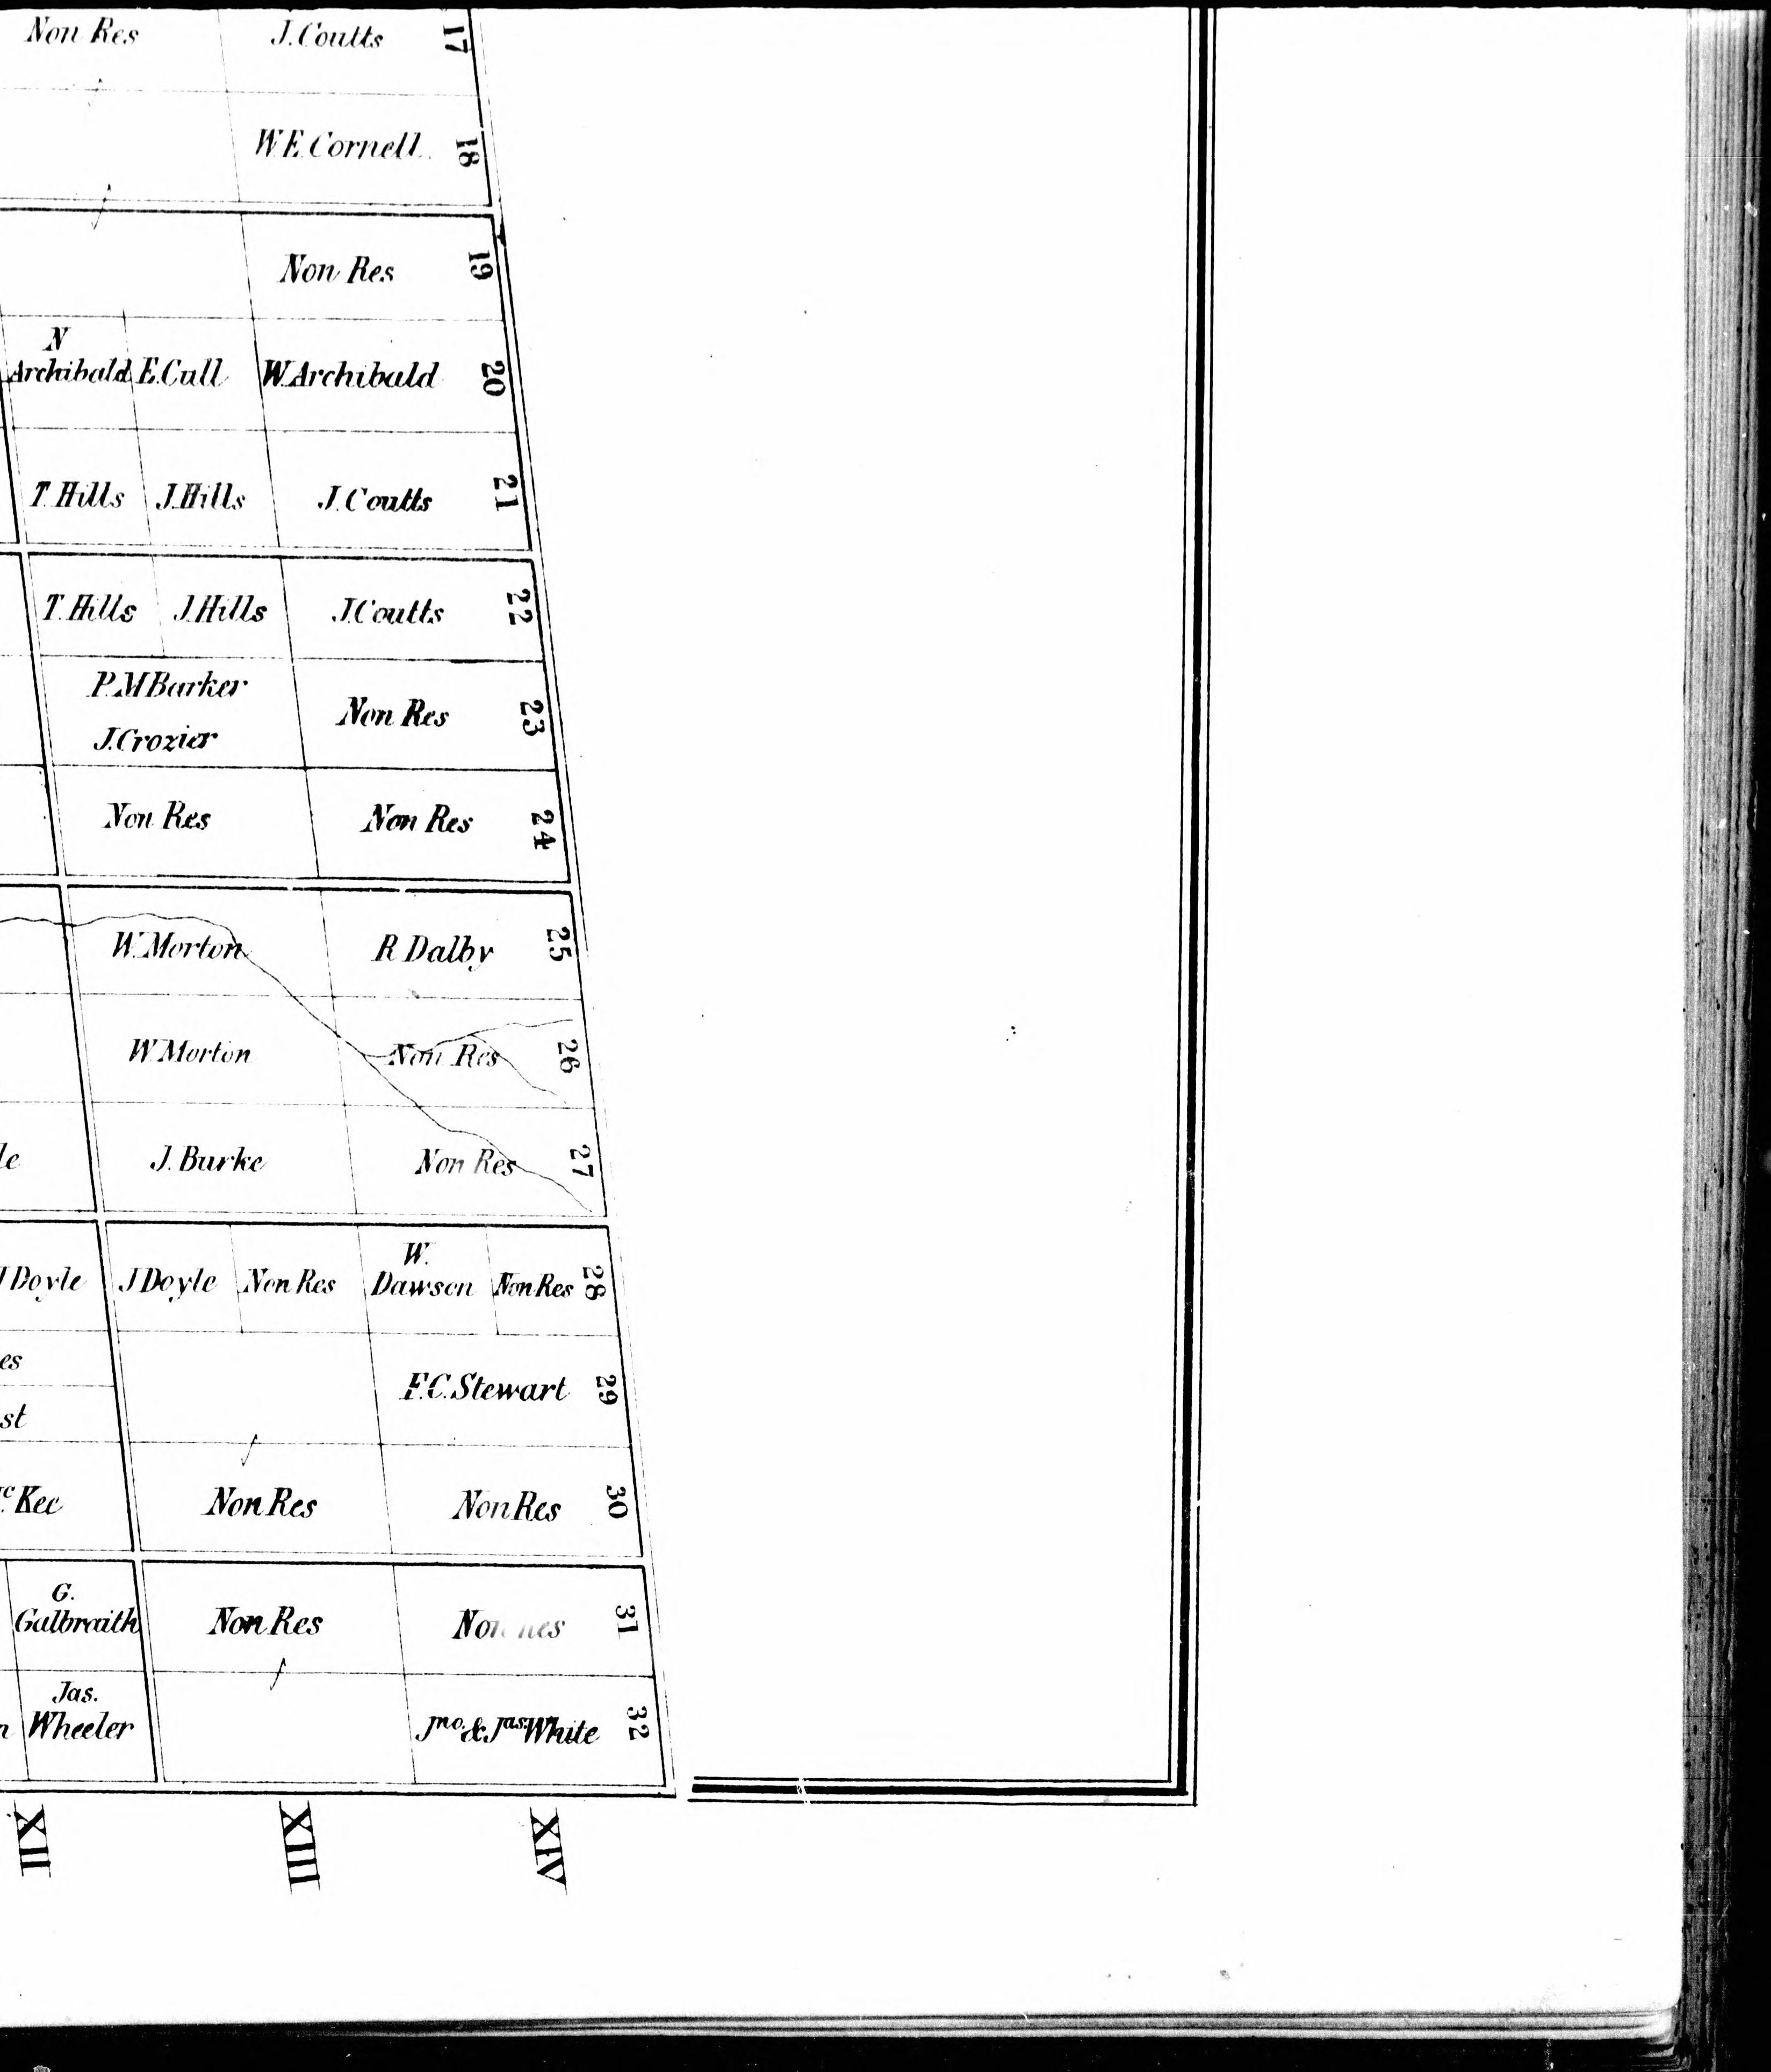 Non Res J. Coutts 17
W.E. Cornell. 18
Non Res 19
N
Archibald E. Cull W. Archibald 20
T. Hills J. Hills J. Coutts 21
T. Hills J. Hills J. Coutts 22
P. M Barker
J. Crozier
Non Res 23
Non Res Non Res 24
W. Morton R Dalby 25
W Morton Non Res 26
le J. Burke Non Res 27
J Doyle J Doyle Non Res W.
Dawson Non Res 28
es
st
F. C. Stewart 29
Mc. Kee Non Res Non Res 30
G.
Galbraith Non Res Non Res 31
Jas.
n Wheeler Jno. & Jas. White 32
XII XIII XIV